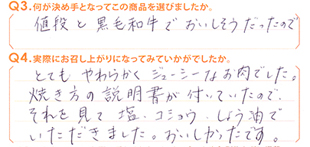 Q3.何が決め手となってこの商品を選びましたか。
値段と黒毛和牛でおいしそうだったので
Q4.実際にお召し上がりになってみていかがでしたか。
とてもやわらかくジューシーなお肉でした。
焼き方の説明書が付いていたので
それを見て塩、コショウ、しょう油で
いただきました。おいしかったです。